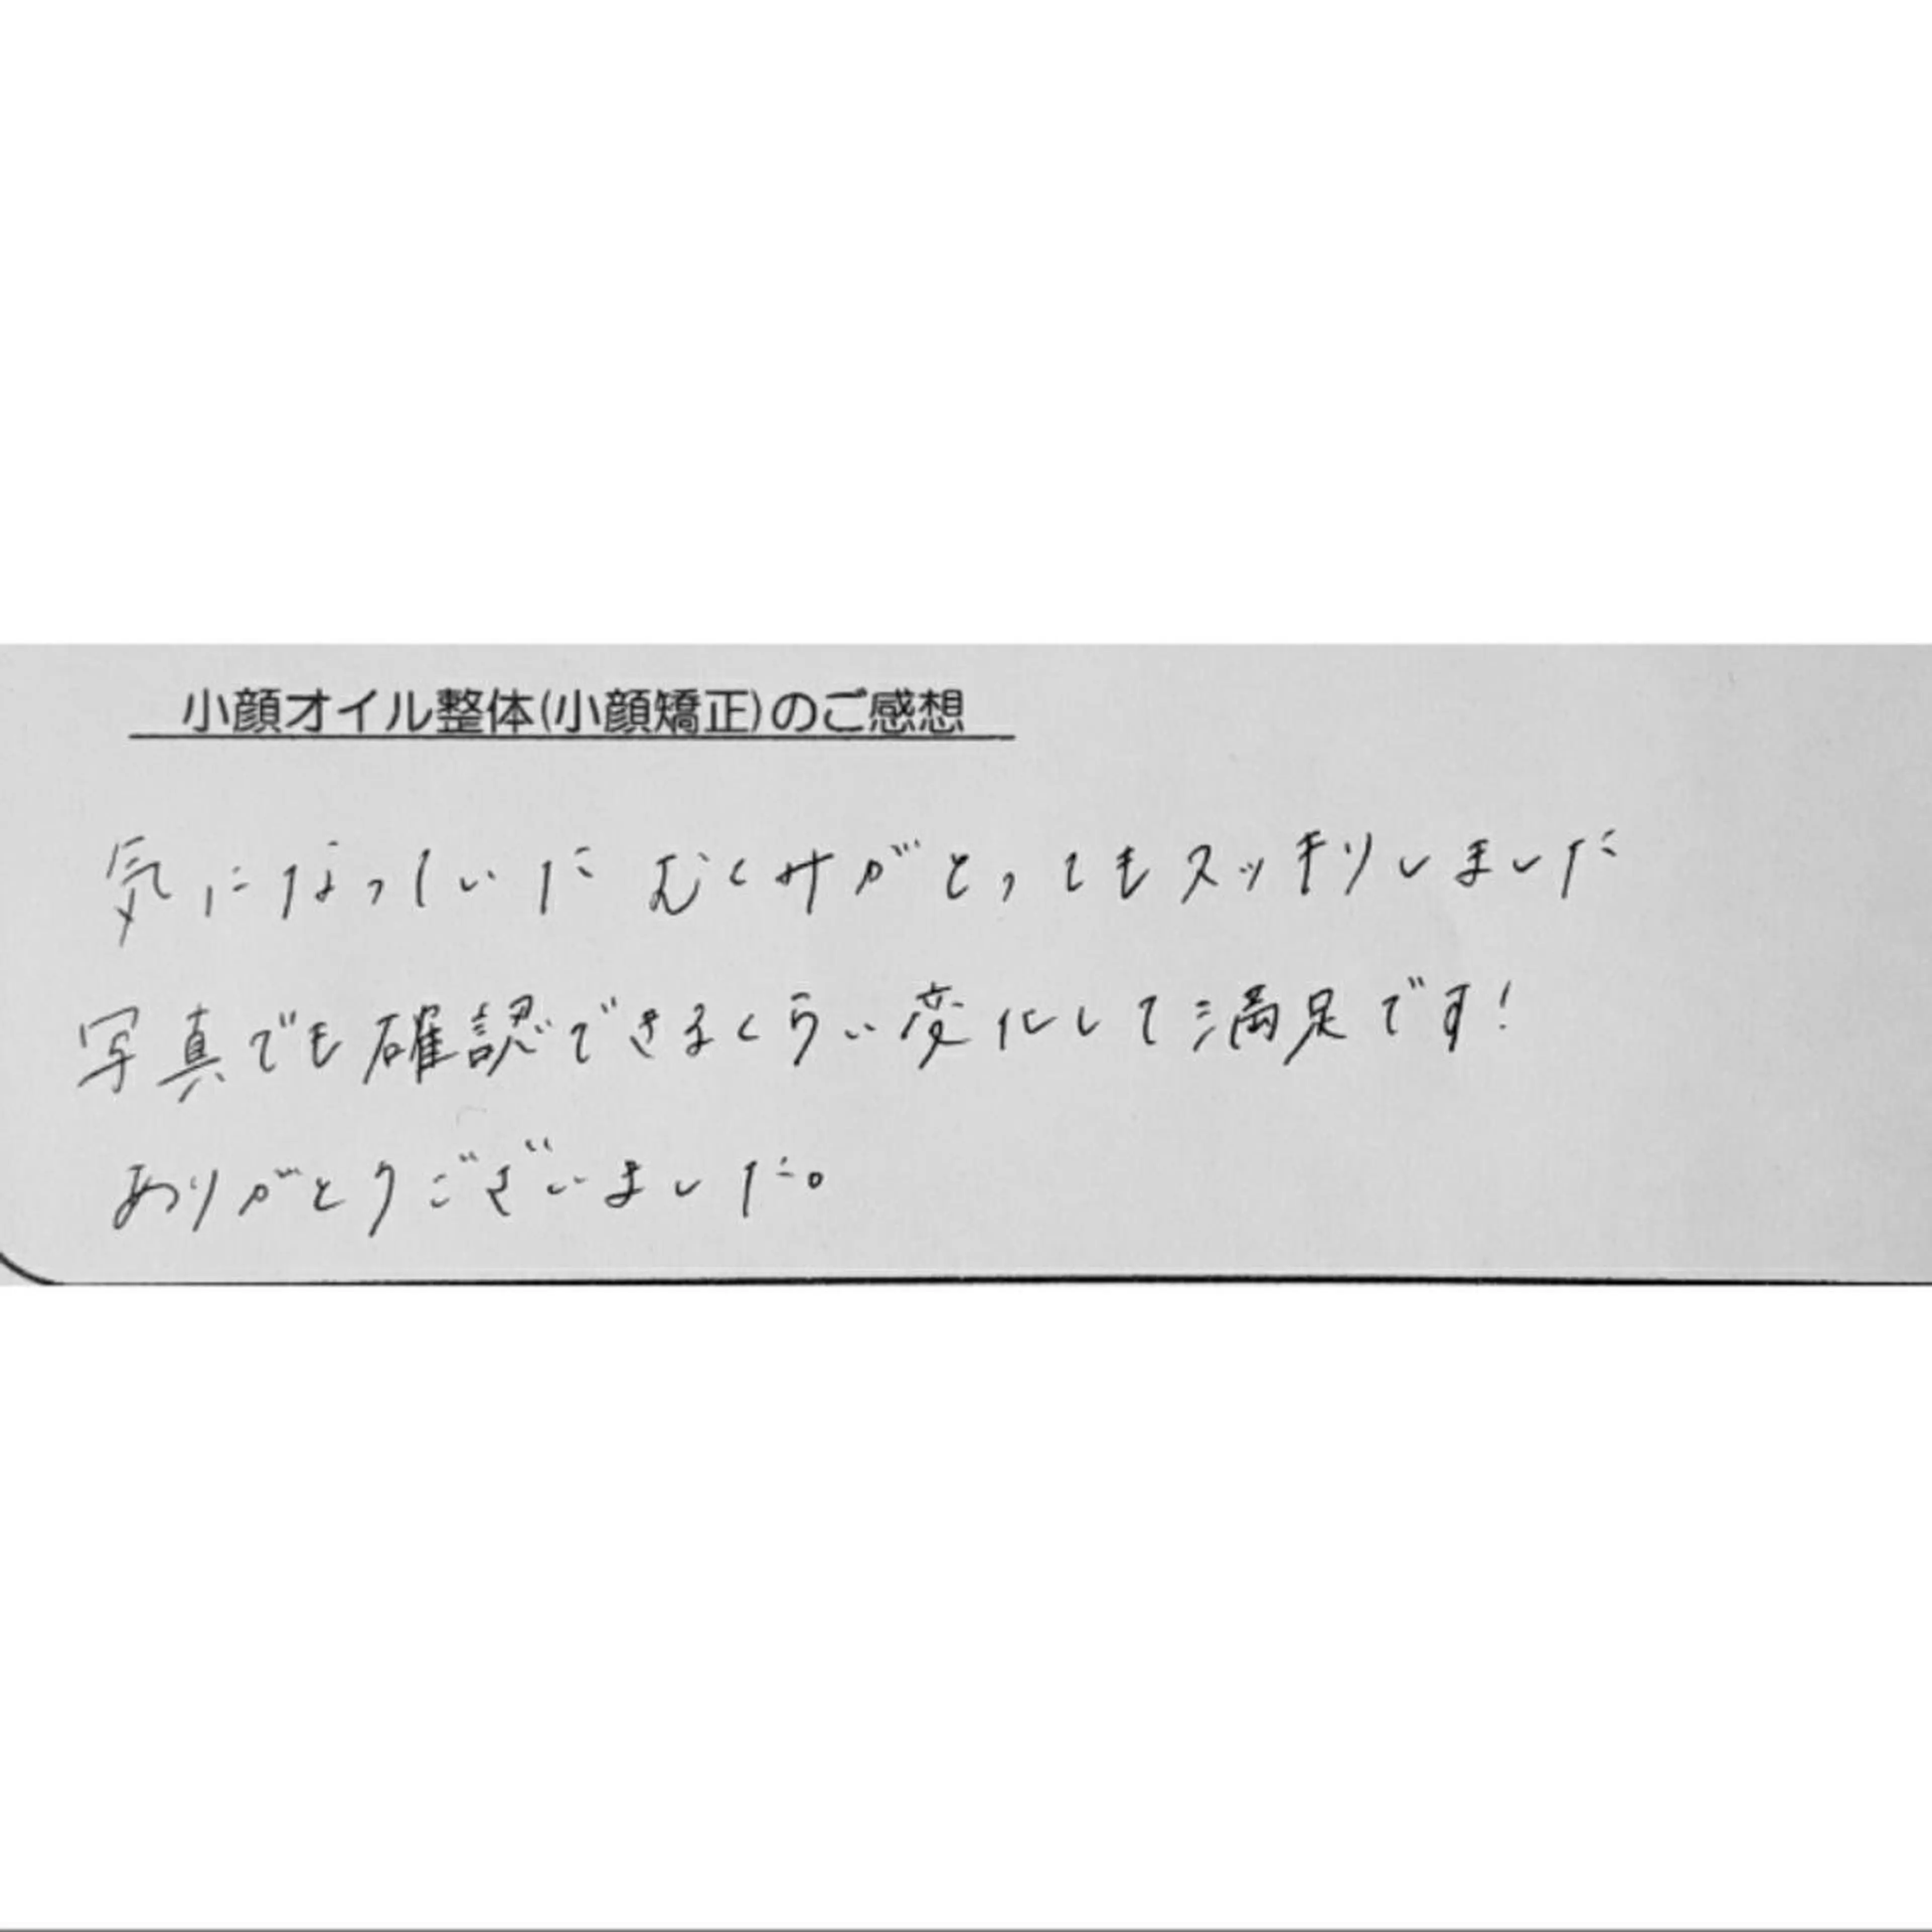 小顔オイル整体(小顔矯正)のご感想
気になっていた むくみがとってもスッキリしました
写真でも確認できるくらい変化して満足です!
ありがとうございました。